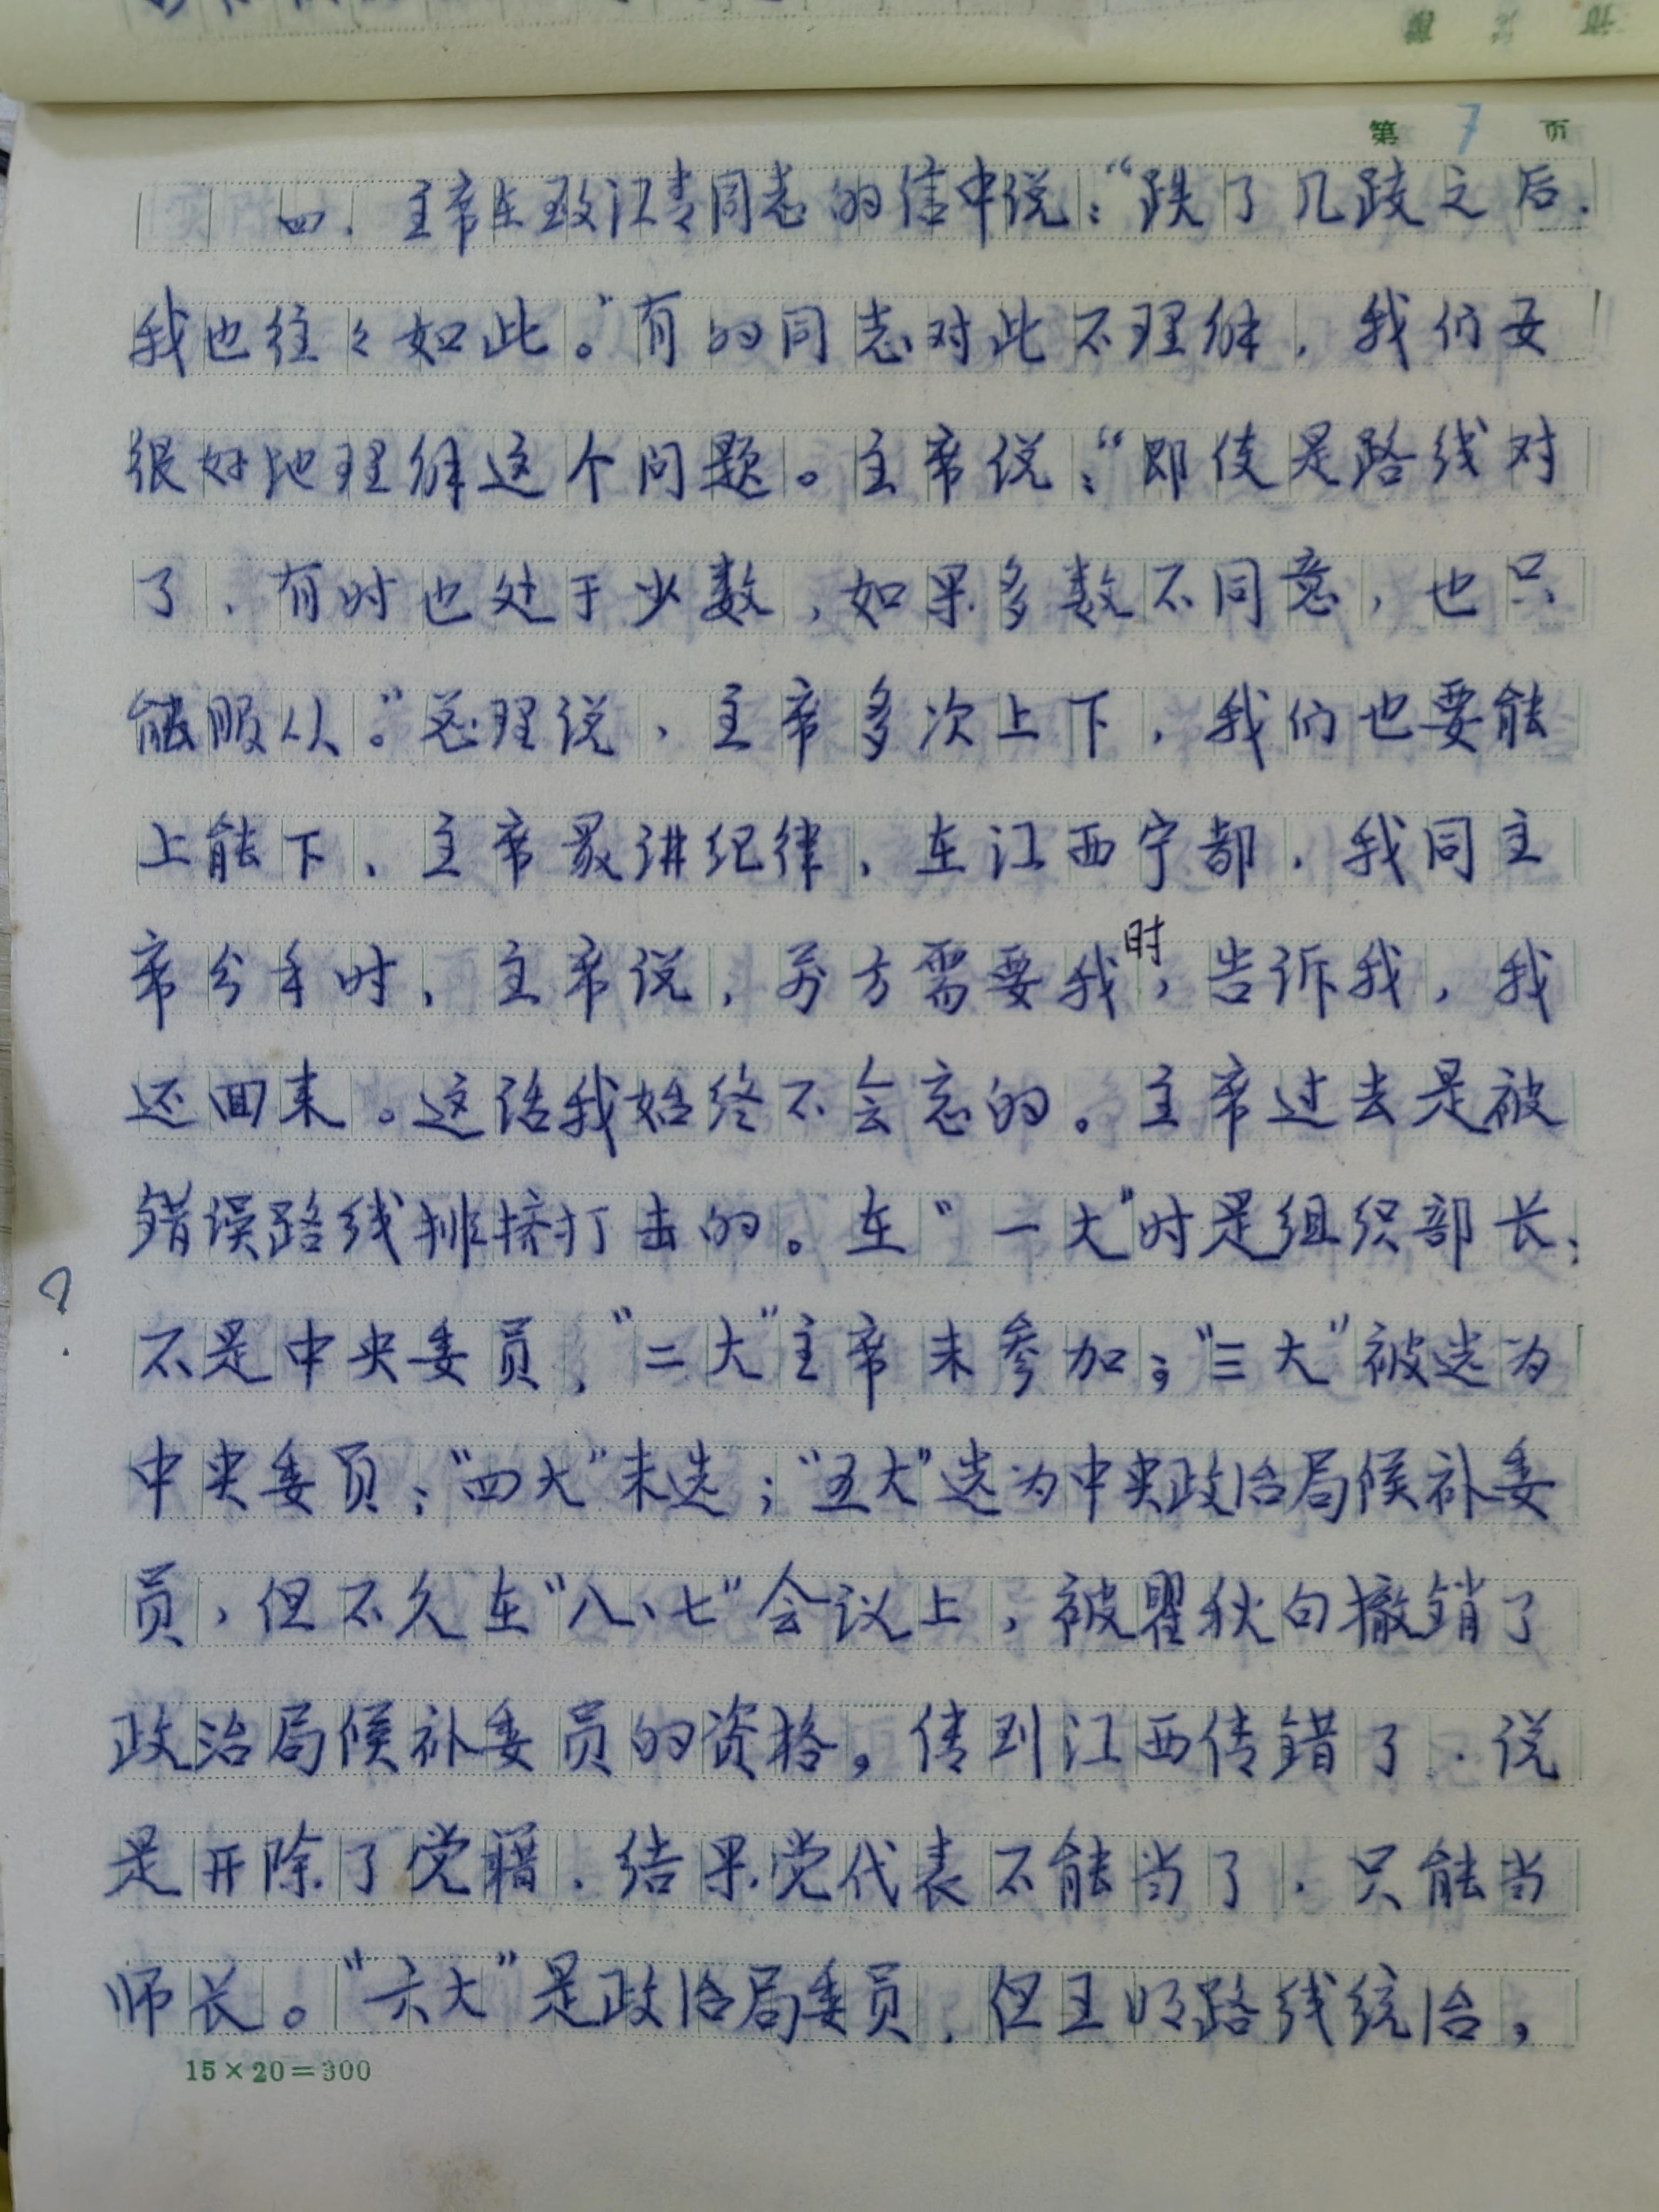 第 7 页
四、主席在致江青同志的信中说:“跌了几跤之后,
我也往々如此。”有的同志对此不理解,我们要
很好地理解这个问题。主席说:“即使是路线对
了,有时也处于少数,如果多数不同意,也只
能服从。”总理说,主席多次上下,我们也要能
上能下,主席最讲纪律,在江西宁都,我同主
席分手时,主席说,前方需要我时,告诉我,我
还回来。这话我始终不会忘的。主席过去是被
错误路线排挤打击的。在“一大”时是组织部长,
? 不是中央委员,“二大”主席未参加;“三大”被选为
中央委员;“四大”未选;“五大”选为中央政治局候补委
员,但不久在“八、七”会议上,被瞿秋白撤销了
政治局候补委员的资格。传到江西传错了,说
是开除了党籍,结果党代表不能当了,只能当
师长。“六大”是政治局委员,但王明路线统治,
15×20=300